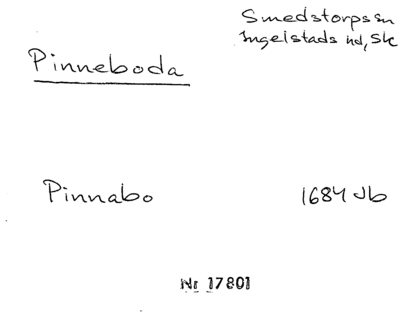 Smedstorps sn
Ingelstads hd, Sk
Pinneboda
Pinnabo 1684 Jb
Nr 17801